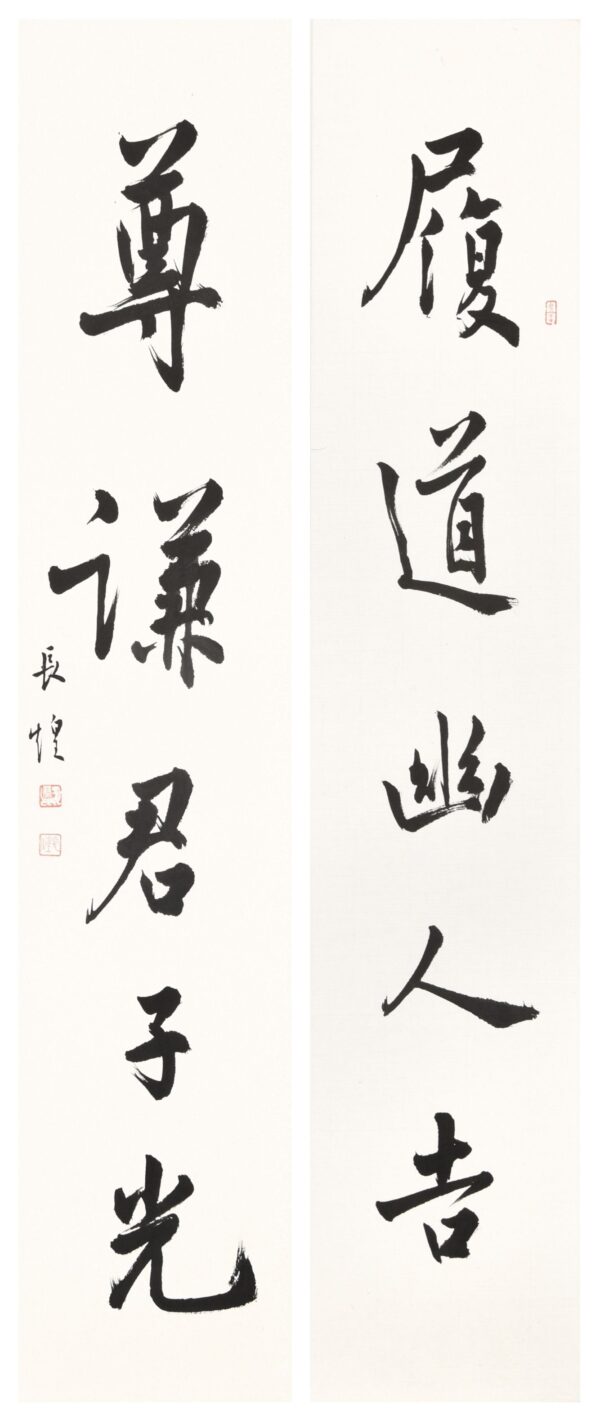 履道幽人吉
尊谦君子光
長煌